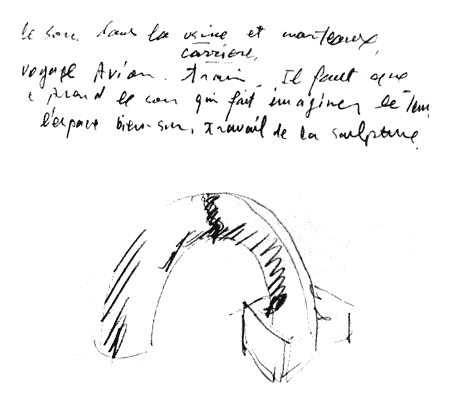 le son dans la usine et marteaux,
carrière,
voyage Avion. train. Il faut que
prend le son qui fait imaginer le Tem
l'espace bien-sur, travail de la sculpture.